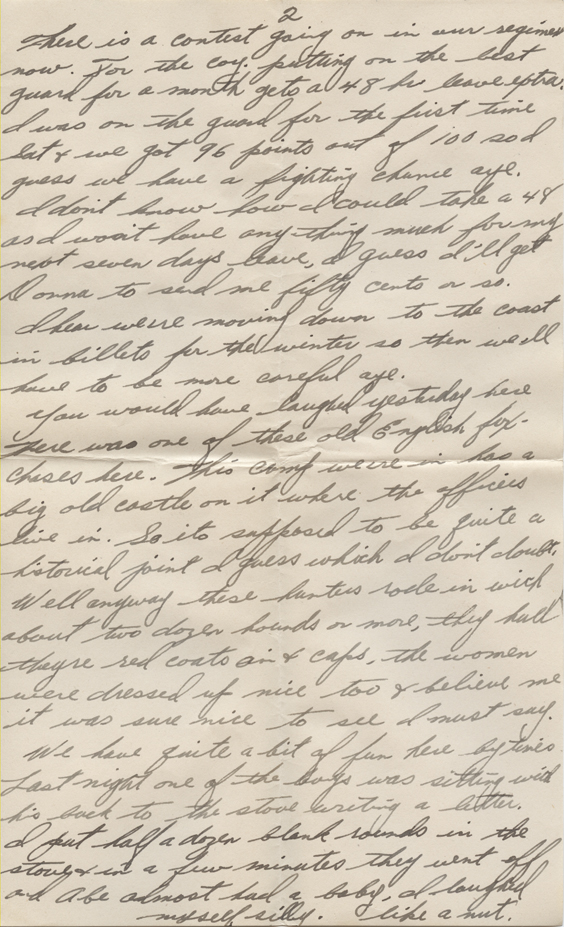 2
There is a contest going on in our regimen
now. For the coy. putting on the best
guard for a month gets a 48 hr leave extra.
I was on the guard for the first time
Sat & we got 96 points out of 100 so I
guess we have a fighting chance aye.
I don't know how I could take a 48
as I won't have anything much for my
next seven days leave, I guess I'll get
Donna to send me fifty cents or so.
I hear we're moving down to the coast
in billets for the winter so then we'll
have to be more careful aye.
You would have laughed yesterday here
There was one of these old English fox-
chases here. This camp we're in has a
big old castle on it where the officers
live in. So its supposed to be quite a
historical joint I guess which I don't doubt.
Well anyway these hunters rode in with
about two dozen hounds or more, they had
they're red coats on & caps, the women
were dressed up nice too & believe me
it was sure nice to see I must say.
We have quite a bit of fun here by times
Last night one of the boys was sitting with
his back to the stove writing a letter.
I put half a dozen blank rounds in the
stove & in a few minutes they went off
and Abe almost had a baby, I laughed
myself silly. like a nut.